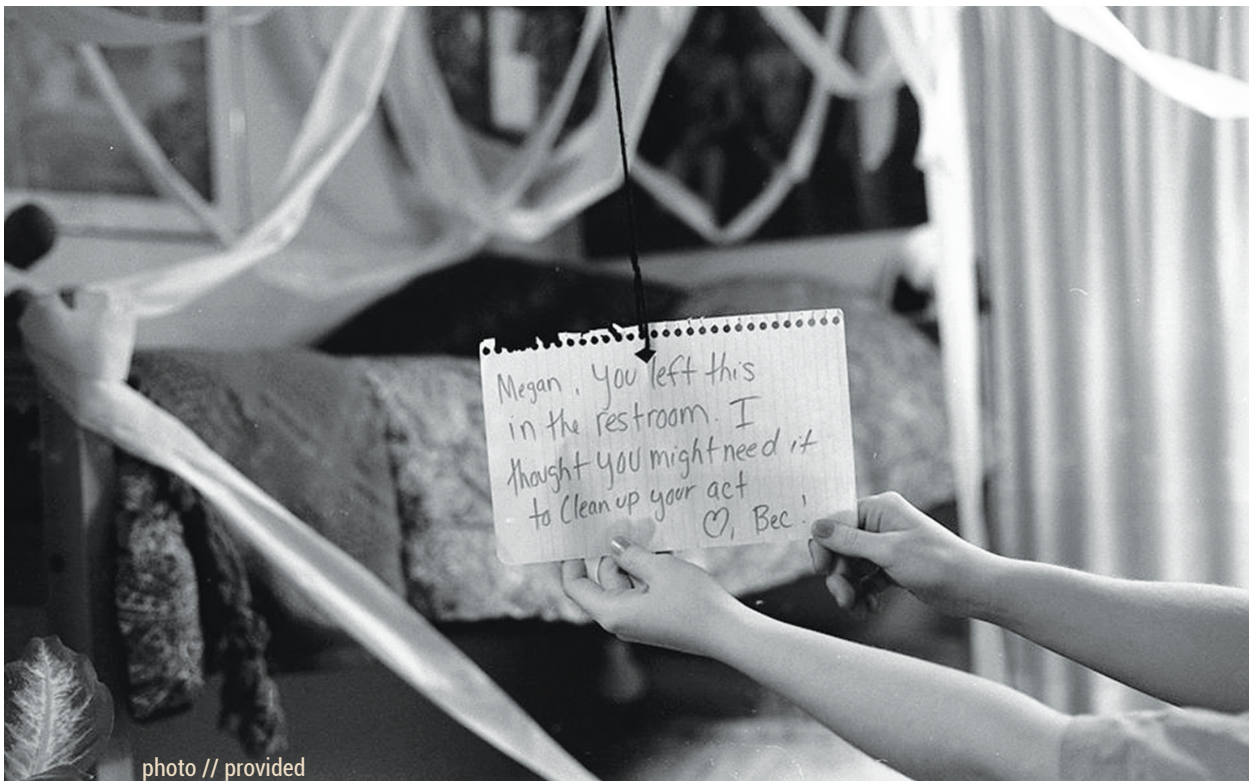 Megan, you left this
in the restroom. I
thought you might need it
to clean up your act
♡, Bec!
photo // provided